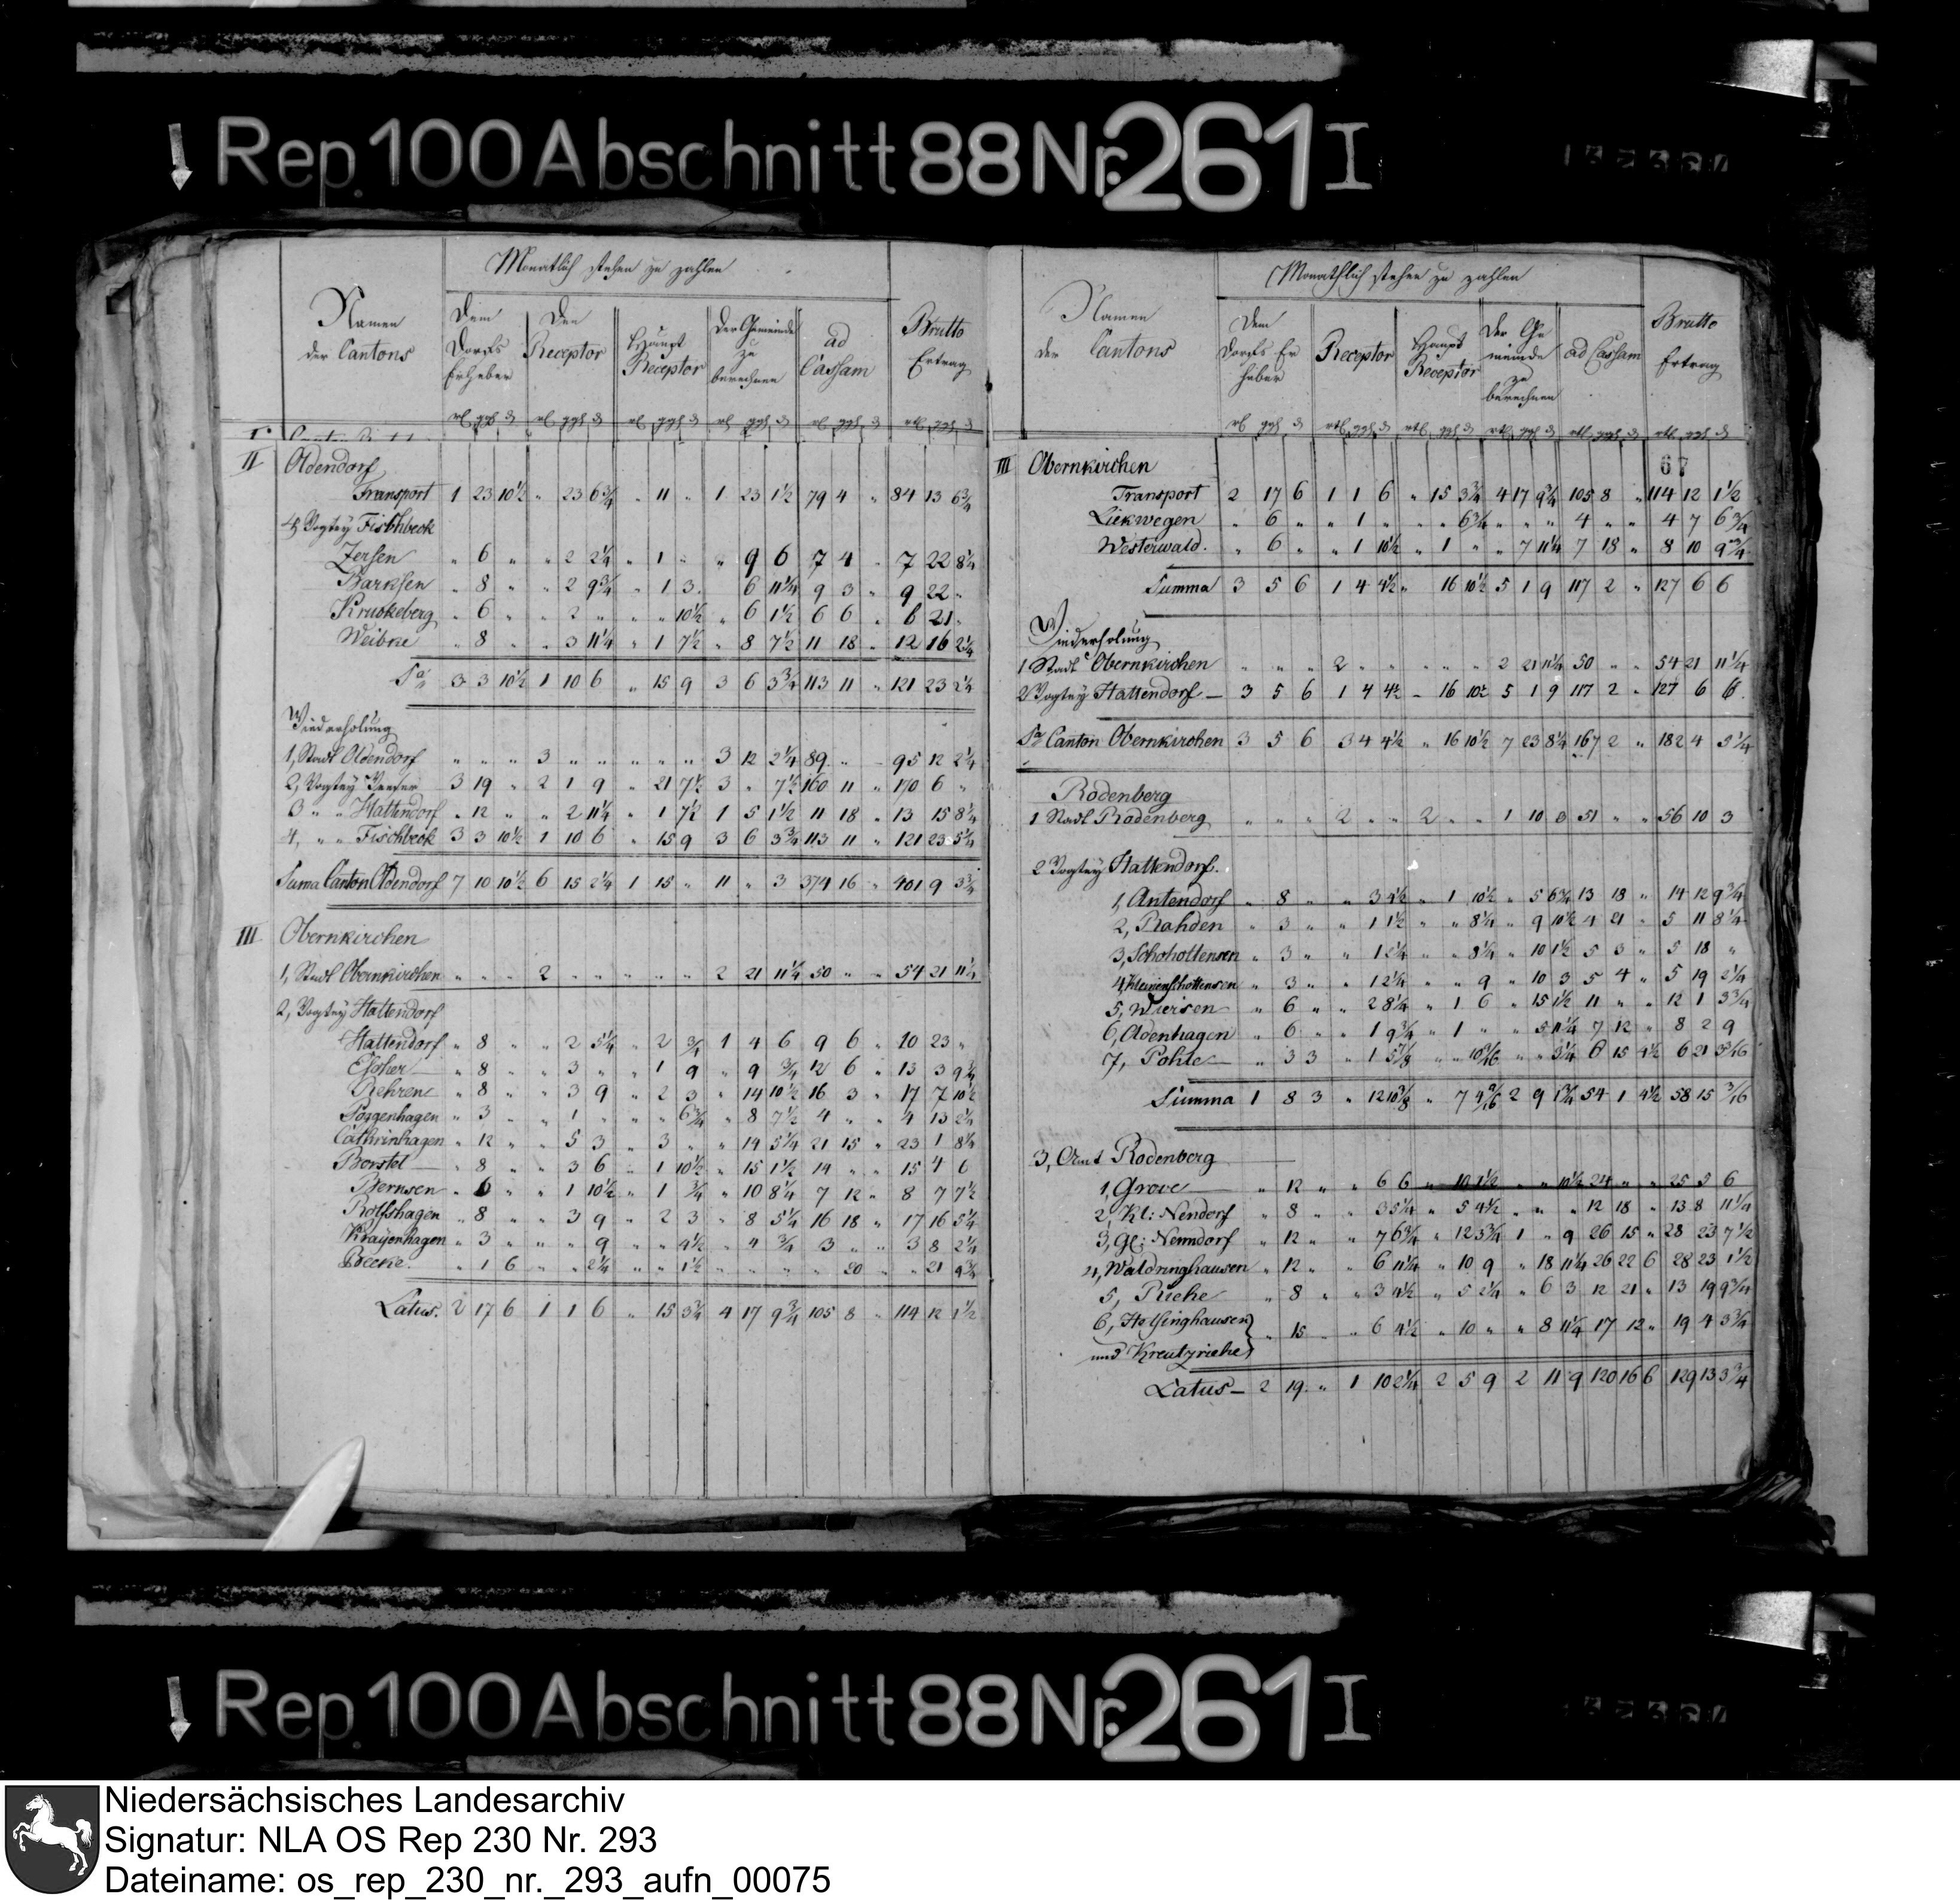 Rep. 100 Abschnitt 88 Nr. 261 I
Monatlich stehen zu zahlen
Namen der Cantons
Dem Dorfs Erheber
Den Receptor
Haupt Receptor
Der Gemeinde zu berechnen
ad Cassam
Brutto Ertrag
II Oldendorf
Transport 1 23 10½ „ 23 6¾ „ 11 „ 1 23 1½ 79 4 „ 84 13 6¾
4, Vogtey Fischbeck
Zersen „ 6 „ „ 2 2¼ „ 1 „ „ 9 6 7 4 „ 7 22 8¼
Barksen „ 8 „ „ 2 9¾ „ 1 3 „ 6 11¼ 9 3 „ 9 22 „
Kruckeberg „ 6 „ „ 2 „ „ „ 10½ „ 6 1½ 6 6 „ 6 21 „
Weibke „ 8 „ „ 3 11¼ „ 1 7½ „ 8 7½ 11 18 „ 12 16 2¼
Sa 3 3 10½ 1 10 6 „ 15 9 3 6 3¾ 113 11 „ 121 23 2¼
Wiederholung
1, Stadt Oldendorf „ „ „ 3 „ „ „ „ „ 3 12 2¼ 89 „ „ 95 12 2¼
2, Vogtey 3 19 „ 2 1 9 „ 21 7½ 3 „ 7½ 160 11 „ 170 6 „
3 „ „ Hattendorf „ 12 „ „ 2 11¼ „ 1 7½ 1 5 1½ 11 18 „ 13 15 8¼
4, „ „ Fischbeck 3 3 10½ 1 10 6 „ 15 9 3 6 3¾ 113 11 „ 121 23 5¼
Suma Canton Oldendorf 7 10 10½ 6 15 2¼ 1 15 „ 11 „ 3 374 16 „ 401 9 3¾
III Obernkirchen
1, Stadt Obernkirchen „ „ „ 2 „ „ „ „ „ 2 21 11¼ 50 „ „ 54 21 11¼
2, Vogtey Hattendorf
Hattendorf „ 8 „ „ 2 5¼ „ 2 ¾ 1 4 6 9 6 „ 10 23 „
Escher „ 8 „ „ 3 „ „ 1 9 „ 9 ¾ 12 6 „ 13 3 9¾
Rehren „ 8 „ „ 3 9 „ 2 3 „ 14 10½ 16 3 „ 17 7 10½
Poggenhagen „ 3 „ „ 1 „ „ „ 6¾ „ 8 7½ 4 „ „ 4 13 2¼
Cathrinhagen „ 12 „ „ 5 3 „ 3 „ „ 14 5¼ 21 15 „ 23 1 8¼
Borstel „ 8 „ „ 3 6 „ 1 10½ „ 15 1½ 14 „ „ 15 4 6
Bernsen „ 6 „ „ 1 10½ „ 1 ¾ „ 10 8¼ 7 12 „ 8 7 7½
Rolfshagen „ 8 „ „ 3 9 „ 2 3 „ 8 5¼ 16 18 „ 17 16 5¼
Krayenhagen „ 3 „ „ „ 9 „ „ 4½ „ 4 ¾ 3 „ „ 3 8 2¼
Beeke „ 1 6 „ „ 2¼ „ „ 1½ „ „ „ „ 20 „ „ 21 9¾
Latus. 2 17 6 1 1 6 „ 15 3¾ 4 17 9¾ 105 8 „ 114 12 1½
Monathlich stehen zu zahlen
Namen der Cantons
Dem Dorfs Erheber
Receptor
Haupt Receptor
Der Gemeinde zu berechnen
ad Cassam
Brutto Ertrag
67
III Obernkirchen
Transport 2 17 6 1 1 6 „ 15 3¾ 4 17 9¾ 105 8 „ 114 12 1½
Liekwegen „ 6 „ „ 1 „ „ „ 6¾ „ „ „ 4 „ „ 4 7 6¾
Westerwald. „ 6 „ „ 1 10½ „ 1 „ „ 7 11¼ 7 18 „ 8 10 9¾
Summa 3 5 6 1 4 4½ „ 16 10½ 5 1 9 117 2 „ 127 6 6
Wiederholung
1 Stadt Obernkirchen „ „ „ 2 „ „ „ „ „ 2 21 11¼ 50 „ „ 54 21 11¼
2 Vogtey Hattendorf — 3 5 6 1 4 4½ „ 16 10½ 5 1 9 117 2 „ 127 6 6
Sa Canton Obernkirchen 3 5 6 3 4 4½ „ 16 10½ 7 23 8¼ 167 2 „ 182 4 5¼
Rodenberg
1 Stadt Rodenberg „ „ „ 2 „ „ 2 „ „ 1 10 3 51 „ „ 56 10 3
2 Vogtey Hattendorf.
1, Antendorf „ 8 „ „ 3 4½ „ 1 10½ „ 5 6¾ 13 18 „ 14 12 9¾
2, Rahden „ 3 „ „ 1 1½ „ „ 8¼ „ 9 10½ 4 21 „ 5 11 8¼
3, Schohottensen „ 3 „ „ 1 2¼ „ „ 8¼ „ 10 1½ 5 3 „ 5 18 „
4, Kleinenhottensen „ 3 „ „ 1 2¼ „ „ 9 „ 10 3 5 4 „ 5 19 2¼
5, Wiersen „ 6 „ „ 2 8¼ „ 1 6 „ 15 1½ 11 „ „ 12 1 3¾
6, Aldenhagen „ 6 „ „ 1 9¾ „ 1 „ „ 5 11¼ 7 12 „ 8 2 9
7, Pohle „ 3 3 „ 1 5⅜ „ „ 10 9/16 „ „ 3¼ 6 15 4½ 6 21 3 3/16
Summa 1 8 3 „ 12 10⅜ „ 7 4 9/16 2 9 1¾ 54 1 4½ 58 15 3/16
3, Amt Rodenberg
1, Grove „ 12 „ „ 6 6 „ 10 1½ „ „ 10½ 24 „ „ 25 5 6
2, Kl: Nendorf „ 8 „ „ 3 5¼ „ 5 4½ „ „ „ 12 18 „ 13 8 11¼
3, Gr: Nenndorf „ 12 „ „ 7 6¾ „ 12 5¾ 1 „ 9 26 15 „ 28 23 7½
4, Waldringhausen „ 12 „ „ 6 11¼ „ 10 9 „ 18 11¼ 26 22 6 28 23 1½
5, Riehe „ 8 „ „ 3 4½ „ 5 2¼ „ 6 3 12 21 „ 13 19 9¾
6, Helsinghausen
und Kreutzriehe „ 15 „ „ 6 4½ „ 10 „ „ 8 11¼ 17 12 „ 19 4 3¾
Latus — 2 19 „ 1 10 2¼ 2 5 9 2 11 9 120 16 6 129 13 3¾
Rep. 100 Abschnitt 88 Nr. 261 I
Niedersächsisches Landesarchiv
Signatur: NLA OS Rep 230 Nr. 293
Dateiname: os_rep_230_nr._293_aufn_00075